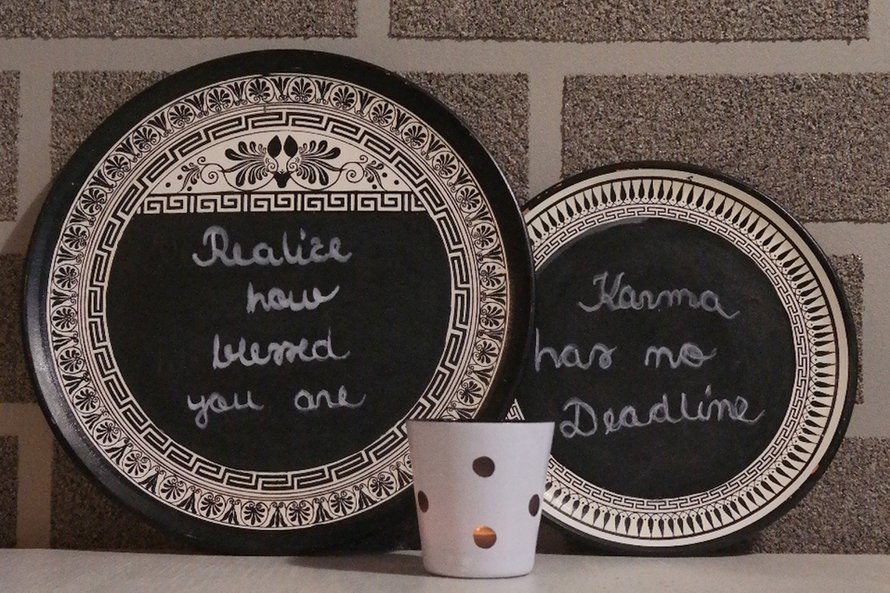 Realize
how
blessed
you are
Karma
has no
Deadline